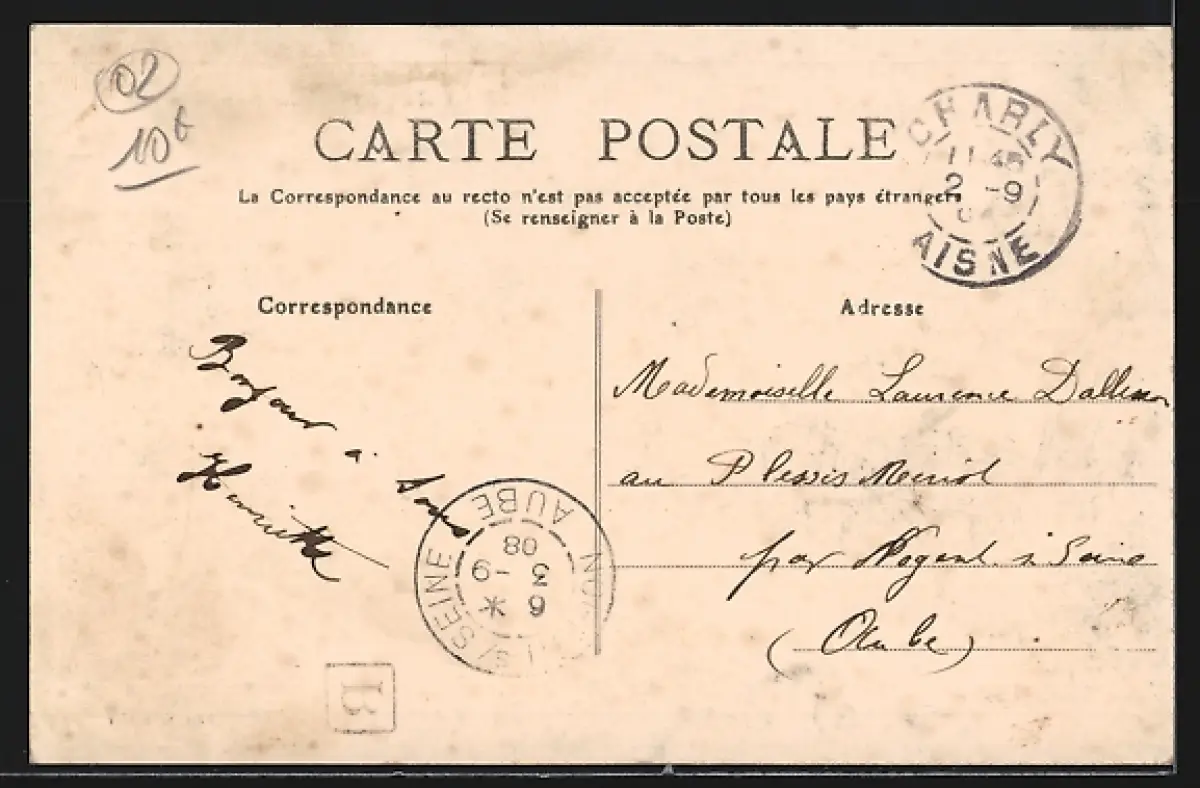 02
10€
CARTE POSTALE
La Correspondance au recto n'est pas acceptée par tous les pays étrangers
(Se renseigner à la Poste)
CHARLY
2 -9
AISNE
Correspondance
Adresse
Bonjour à tous
Henriette
Mademoiselle Laurence
au Plessis Meriot
par Nogent s Seine
(Aube)
S/SEINE AUBE
6 *
3 -9
08
B